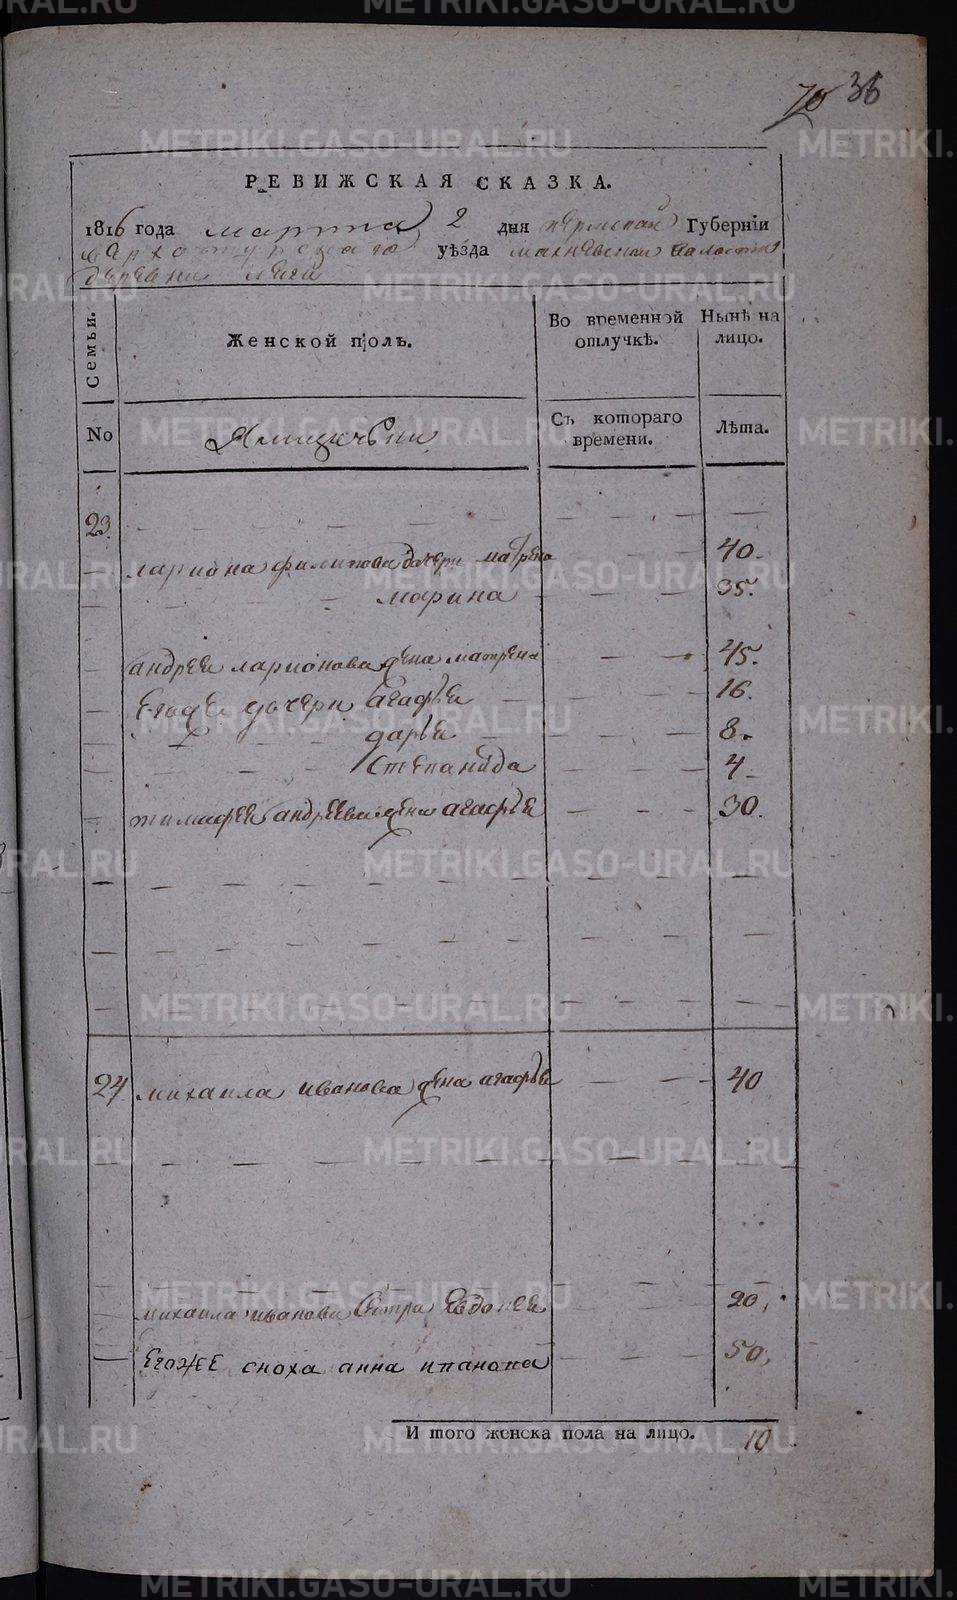 70 36
РЕВИЖСКАЯ СКАЗКА.
1816 года марта 2 дня пермской Губерніи
верхотурскаго уѣзда махневской волости
деревни
Семьи. Женской полъ. Во временной отлучкѣ. Нынѣ на лицо.
No Съ котораго времени. Лѣта.
23.
лариона филипова дочери матрена 40.
марина 35.
андрея ларионова жена матрена 45.
Егоже дочери агафья 16.
дарья 8.
степанида 4
тимофея андреева жена агафья 30.
24. михаила иванова жена агафья 40
михаила иванова сестра Евдокея 20.
Егоже сноха анна 50.
И того женска пола на лицо. 10.
METRIKI.GASO-URAL.RU